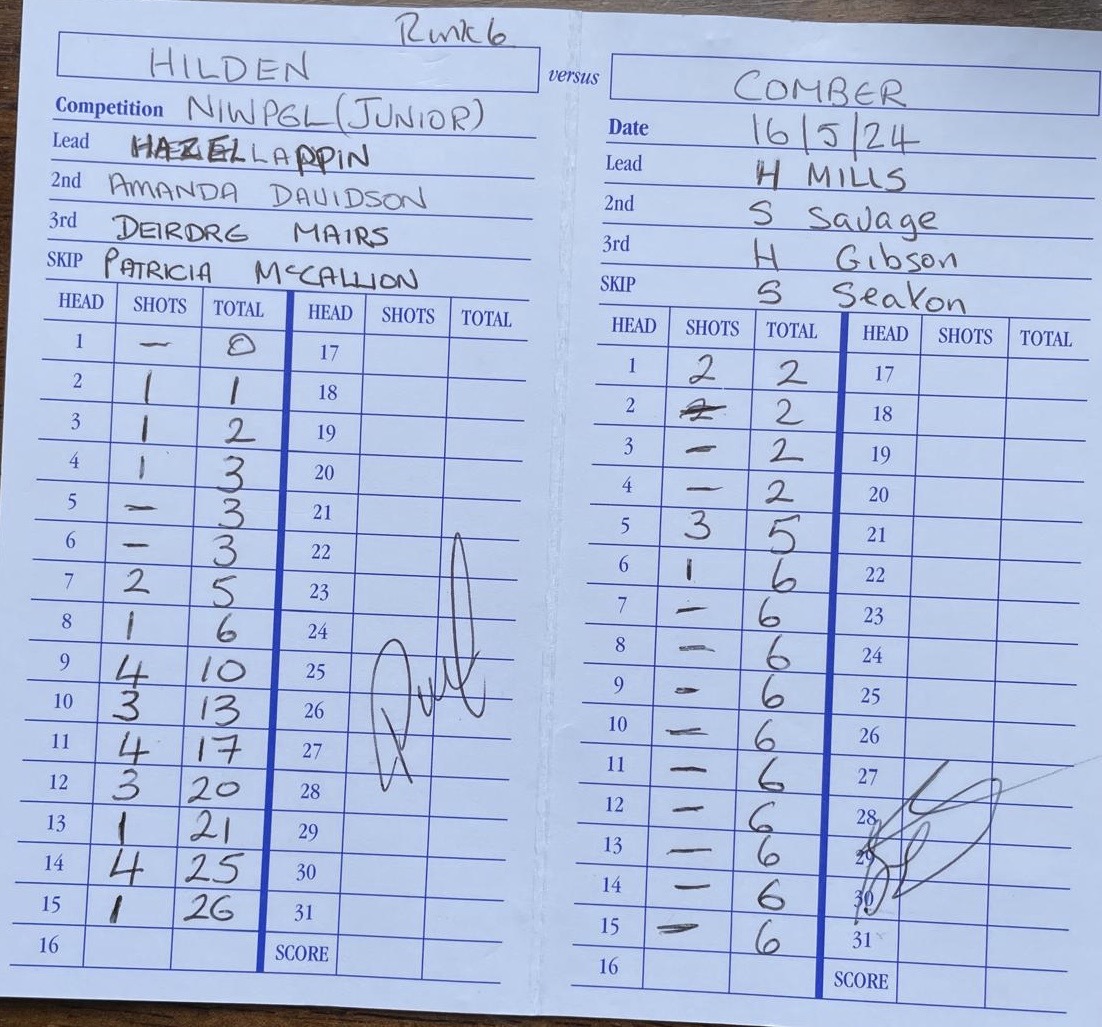 Rink 6
HILDEN versus COMBER
Competition NIWPGL (JUNIOR)
Lead HAZEL LAPPIN
2nd AMANDA DAVIDSON
3rd DEIRDRE MAIRS
SKIP PATRICIA McCALLION
HEAD SHOTS TOTAL HEAD SHOTS TOTAL
1 – 0 17
2 1 1 18
3 1 2 19
4 1 3 20
5 – 3 21
6 – 3 22
7 2 5 23
8 1 6 24
9 4 10 25
10 3 13 26
11 4 17 27
12 3 20 28
13 1 21 29
14 4 25 30
15 1 26 31
16 SCORE
Date 16/5/24
Lead H MILLS
2nd S Savage
3rd H Gibson
SKIP S Seaton
HEAD SHOTS TOTAL HEAD SHOTS TOTAL
1 2 2 17
2 – 2 18
3 – 2 19
4 – 2 20
5 3 5 21
6 1 6 22
7 – 6 23
8 – 6 24
9 – 6 25
10 – 6 26
11 – 6 27
12 – 6 28
13 – 6 29
14 – 6 30
15 – 6 31
16 SCORE